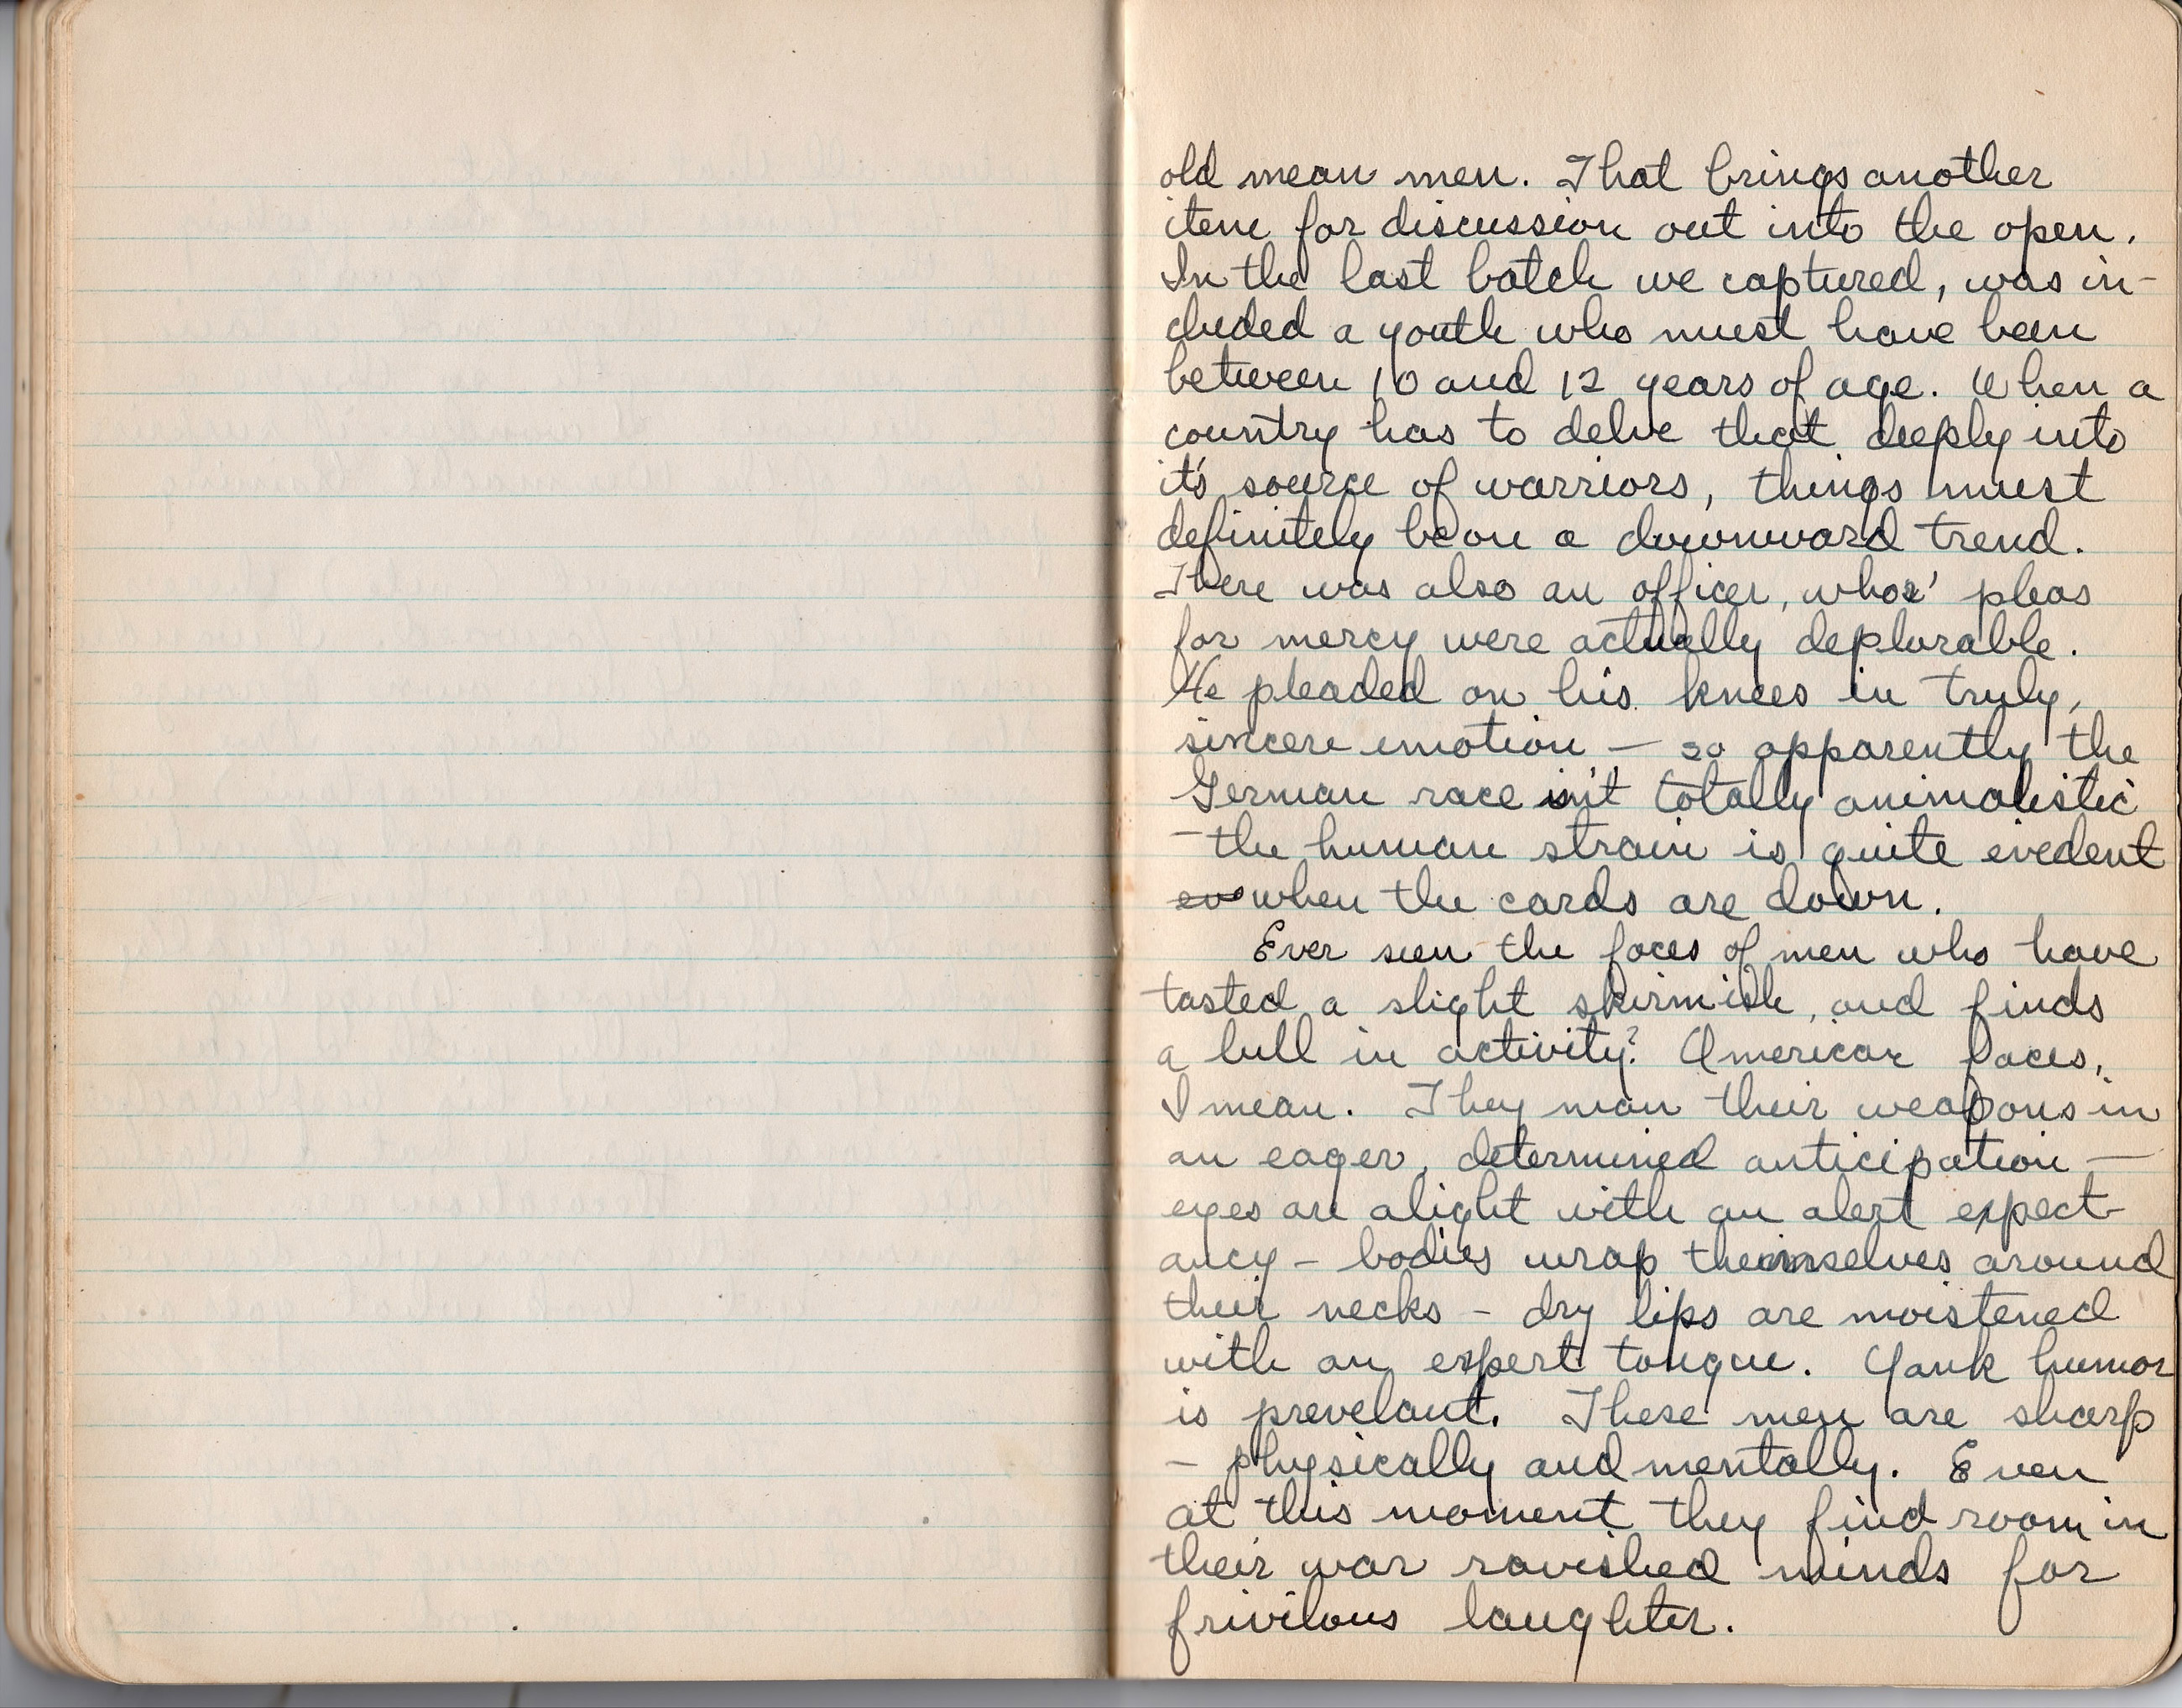 old mean men. That brings another
item for discussion out into the open.
In the last batch we captured, was in-
cluded a youth who must have been
between 10 and 12 years of age. When a
country has to delve that deeply into
it's source of warriors, things must
definitely be on a downward trend.
There was also an officer, whos' pleas
for mercy were actually deplorable.
He pleaded on his knees in truly,
sincere emotion — so apparently the
German race isn't totally animalistic
— the human strain is quite evedent
when the cards are down.
Ever seen the faces of men who have
tasted a slight skirmish, and finds
a lull in activity? American faces,
I mean. They man their weapons in
an eager, determined anticipation —
eyes are alight with an alert expect-
ancy — bodies wrap themselves around
their necks — dry lips are moistened
with an expert tongue. Yank humor
is prevelant. These men are sharp
— physically and mentally. Even
at this moment they find room in
their war ravished minds for
frivilous laughter.